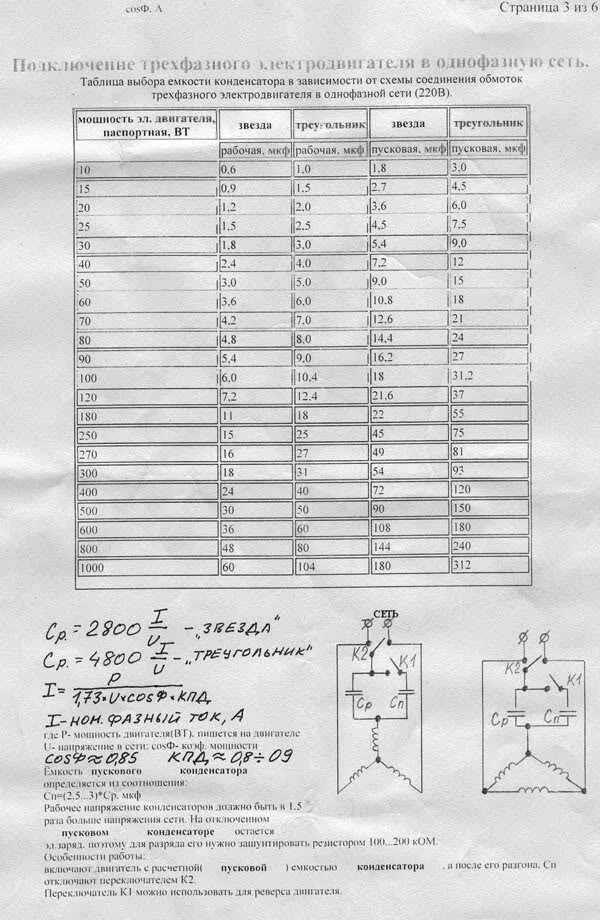 cosФ. А
Страница 3 из 6
Подключение трехфазного электродвигателя в однофазную сеть.
Таблица выбора емкости конденсатора в зависимости от схемы соединения обмоток
трехфазного электродвигателя в однофазной сети (220В).
мощность эл. двигателя, паспортная, ВТ звезда треугольник звезда треугольник
рабочая, мкф рабочая, мкф пусковая, мкф пусковая, мкф
10 0,6 1,0 1,8 3,0
15 0,9 1,5 2,7 4,5
20 1,2 2,0 3,6 6,0
25 1,5 2,5 4,5 7,5
30 1,8 3,0 5,4 9,0
40 2,4 4,0 7,2 12
50 3,0 5,0 9,0 15
60 3,6 6,0 10,8 18
70 4,2 7,0 12,6 21
80 4,8 8,0 14,4 24
90 5,4 9,0 16,2 27
100 6,0 10,4 18 31,2
120 7,2 12,4 21,6 37
180 11 18 22 55
250 15 25 45 75
270 16 27 49 81
300 18 31 54 93
400 24 40 72 120
500 30 50 90 150
600 36 60 108 180
800 48 80 144 240
1000 60 104 180 312
Cр.=2800 I/U – „ЗВЕЗДА"
Cр.=4800 I/U – „ТРЕУГОЛЬНИК"
I= P/1,73·U×COSФ×КПД
I- НОМ. ФАЗНЫЙ ТОК, А
где Р- мощность двигателя(ВТ), пишется на двигателе
U- напряжение в сети: cosФ- коэф. мощности
COSФ≈0,85 КПД≈0,8÷09
Емкость пускового конденсатора
определяется из соотношения:
Сп=(2,5...3)*Ср. мкф
Рабочее напряжение конденсаторов должно быть в 1,5
раза больше напряжения сети. На отключенном
пусковом конденсаторе остается
эл.заряд. поэтому для разряда его нужно зашунтировать резистором 100...200 кОМ.
Особенности работы:
включают двигатель с расчетной( пусковой ) емкостью конденсатора , а после его разгона, Сп
отключают переключателем К2.
Переключатель К1 можно использовать для реверса двигателя.
СЕТЬ
К2
К1
Ср
Сп
К2
К1
Ср
Сп